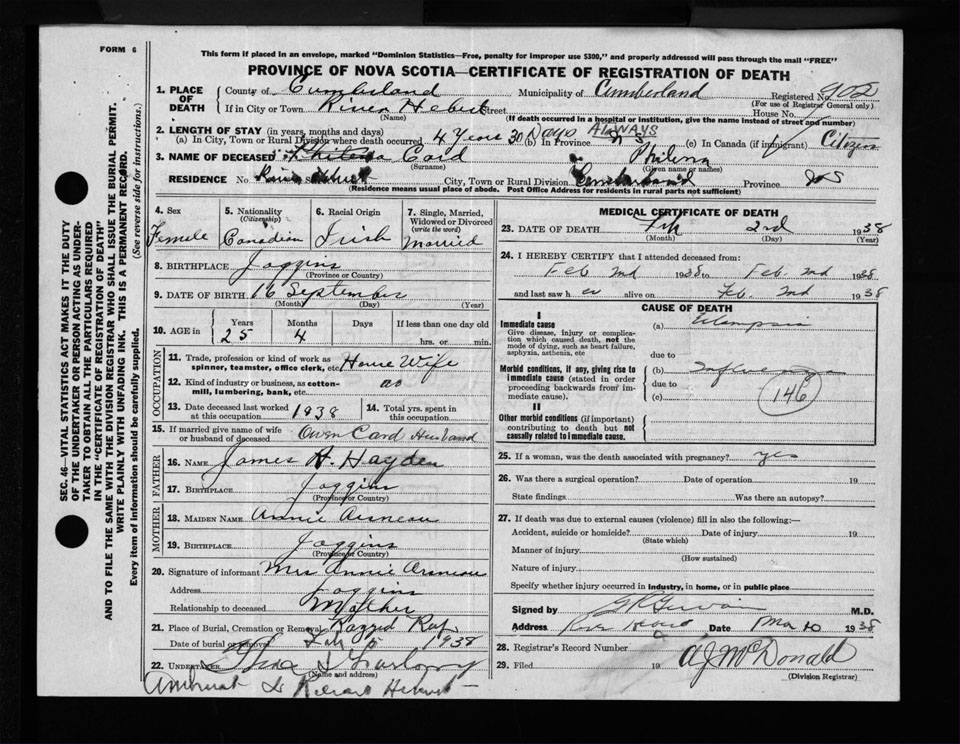 FORM 6
This form if placed in an envelope, marked "Dominion Statistics—Free, penalty for improper use $300," and properly addressed will pass through the mail "FREE"
PROVINCE OF NOVA SCOTIA—CERTIFICATE OF REGISTRATION OF DEATH
SEC. 46—VITAL STATISTICS ACT MAKES IT THE DUTY
OF THE UNDERTAKER OR PERSON ACTING AS UNDER-
TAKER TO OBTAIN ALL THE PARTICULARS REQUIRED
IN THE "CERTIFICATE OF REGISTRATION OF DEATH"
AND TO FILE THE SAME WITH THE DIVISION REGISTRAR WHO SHALL ISSUE THE BURIAL PERMIT.
WRITE PLAINLY WITH UNFADING INK. THIS IS A PERMANENT RECORD.
Every item of information should be carefully supplied. (See reverse side for instructions.)
1. PLACE OF DEATH
County of Cumberland Municipality of Cumberland Registered No. 902
(For use of Registrar General only)
If in City or Town River Hebert Street House No.
(Name) (If death occurred in a hospital or institution, give the name instead of street and number)
2. LENGTH OF STAY (in years, months and days)
(a) In City, Town or Rural Division where death occurred 4 Years 30 Days (b) In Province ALWAYS N S (c) In Canada (if immigrant) Citizen
3. NAME OF DECEASED Card Philena
(Surname) (Given name or names)
RESIDENCE No. River Hebert City, Town or Rural Division Cumberland Province N S
(Residence means usual place of abode. Post Office Address for residents in rural parts not sufficient)
4. Sex
Female
5. Nationality
(Citizenship)
Canadian
6. Racial Origin
Irish
7. Single, Married, Widowed or Divorced
(write the word)
Married
8. BIRTHPLACE Joggins
(Province or Country)
9. DATE OF BIRTH 16 September
(Month) (Day) (Year)
10. AGE in Years Months Days If less than one day old
25 4 hrs. or min.
OCCUPATION
11. Trade, profession or kind of work as
spinner, teamster, office clerk, etc House Wife
12. Kind of industry or business, as cotton-
mill, lumbering, bank, etc.
13. Date deceased last worked
at this occupation 1938
14. Total yrs. spent in
this occupation
15. If married give name of wife
or husband of deceased Owen Card Husband
FATHER
16. NAME James H. Hayden
17. BIRTHPLACE Joggins
(Province or Country)
MOTHER
18. MAIDEN NAME Annie Arsneau
19. BIRTHPLACE Joggins
(Province or Country)
20. Signature of informant Mrs Annie Arsneau
Address Joggins
Relationship to deceased Mother
21. Place of Burial, Cremation or Removal Ragged Reef
Date of burial or removal Feb 5 1938
22. UNDERTAKER
(Name and address)
Amherst & River Hebert
MEDICAL CERTIFICATE OF DEATH
23. DATE OF DEATH Feb 2nd 1938
(Month) (Day) (Year)
24. I HEREBY CERTIFY that I attended deceased from:
Feb 2nd 1938 to Feb 2nd 1938
and last saw h er alive on Feb. 2nd 1938
CAUSE OF DEATH
I
Immediate cause
Give disease, injury or complica-
tion which caused death, not the
mode of dying, such as heart failure,
asphyxia, asthenia, etc
(a) Eclampsia
due to
Morbid conditions, if any, giving rise to
immediate cause (stated in order
proceeding backwards from im-
mediate cause).
(b) Influenza
due to
(c)
146
II
Other morbid conditions (if important)
contributing to death but not
causally related to immediate cause.
25. If a woman, was the death associated with pregnancy? yes
26. Was there a surgical operation? Date of operation 19
State findings Was there an autopsy?
27. If death was due to external causes (violence) fill in also the following:—
Accident, suicide or homicide? Date of injury 19
(State which)
Manner of injury
(How sustained)
Nature of injury
Specify whether injury occurred in industry, in home, or in public place
Signed by M.D.
Address River Hebert Date Mar 10 1938
28. Registrar's Record Number
29. Filed 19 A J McDonald
(Division Registrar)